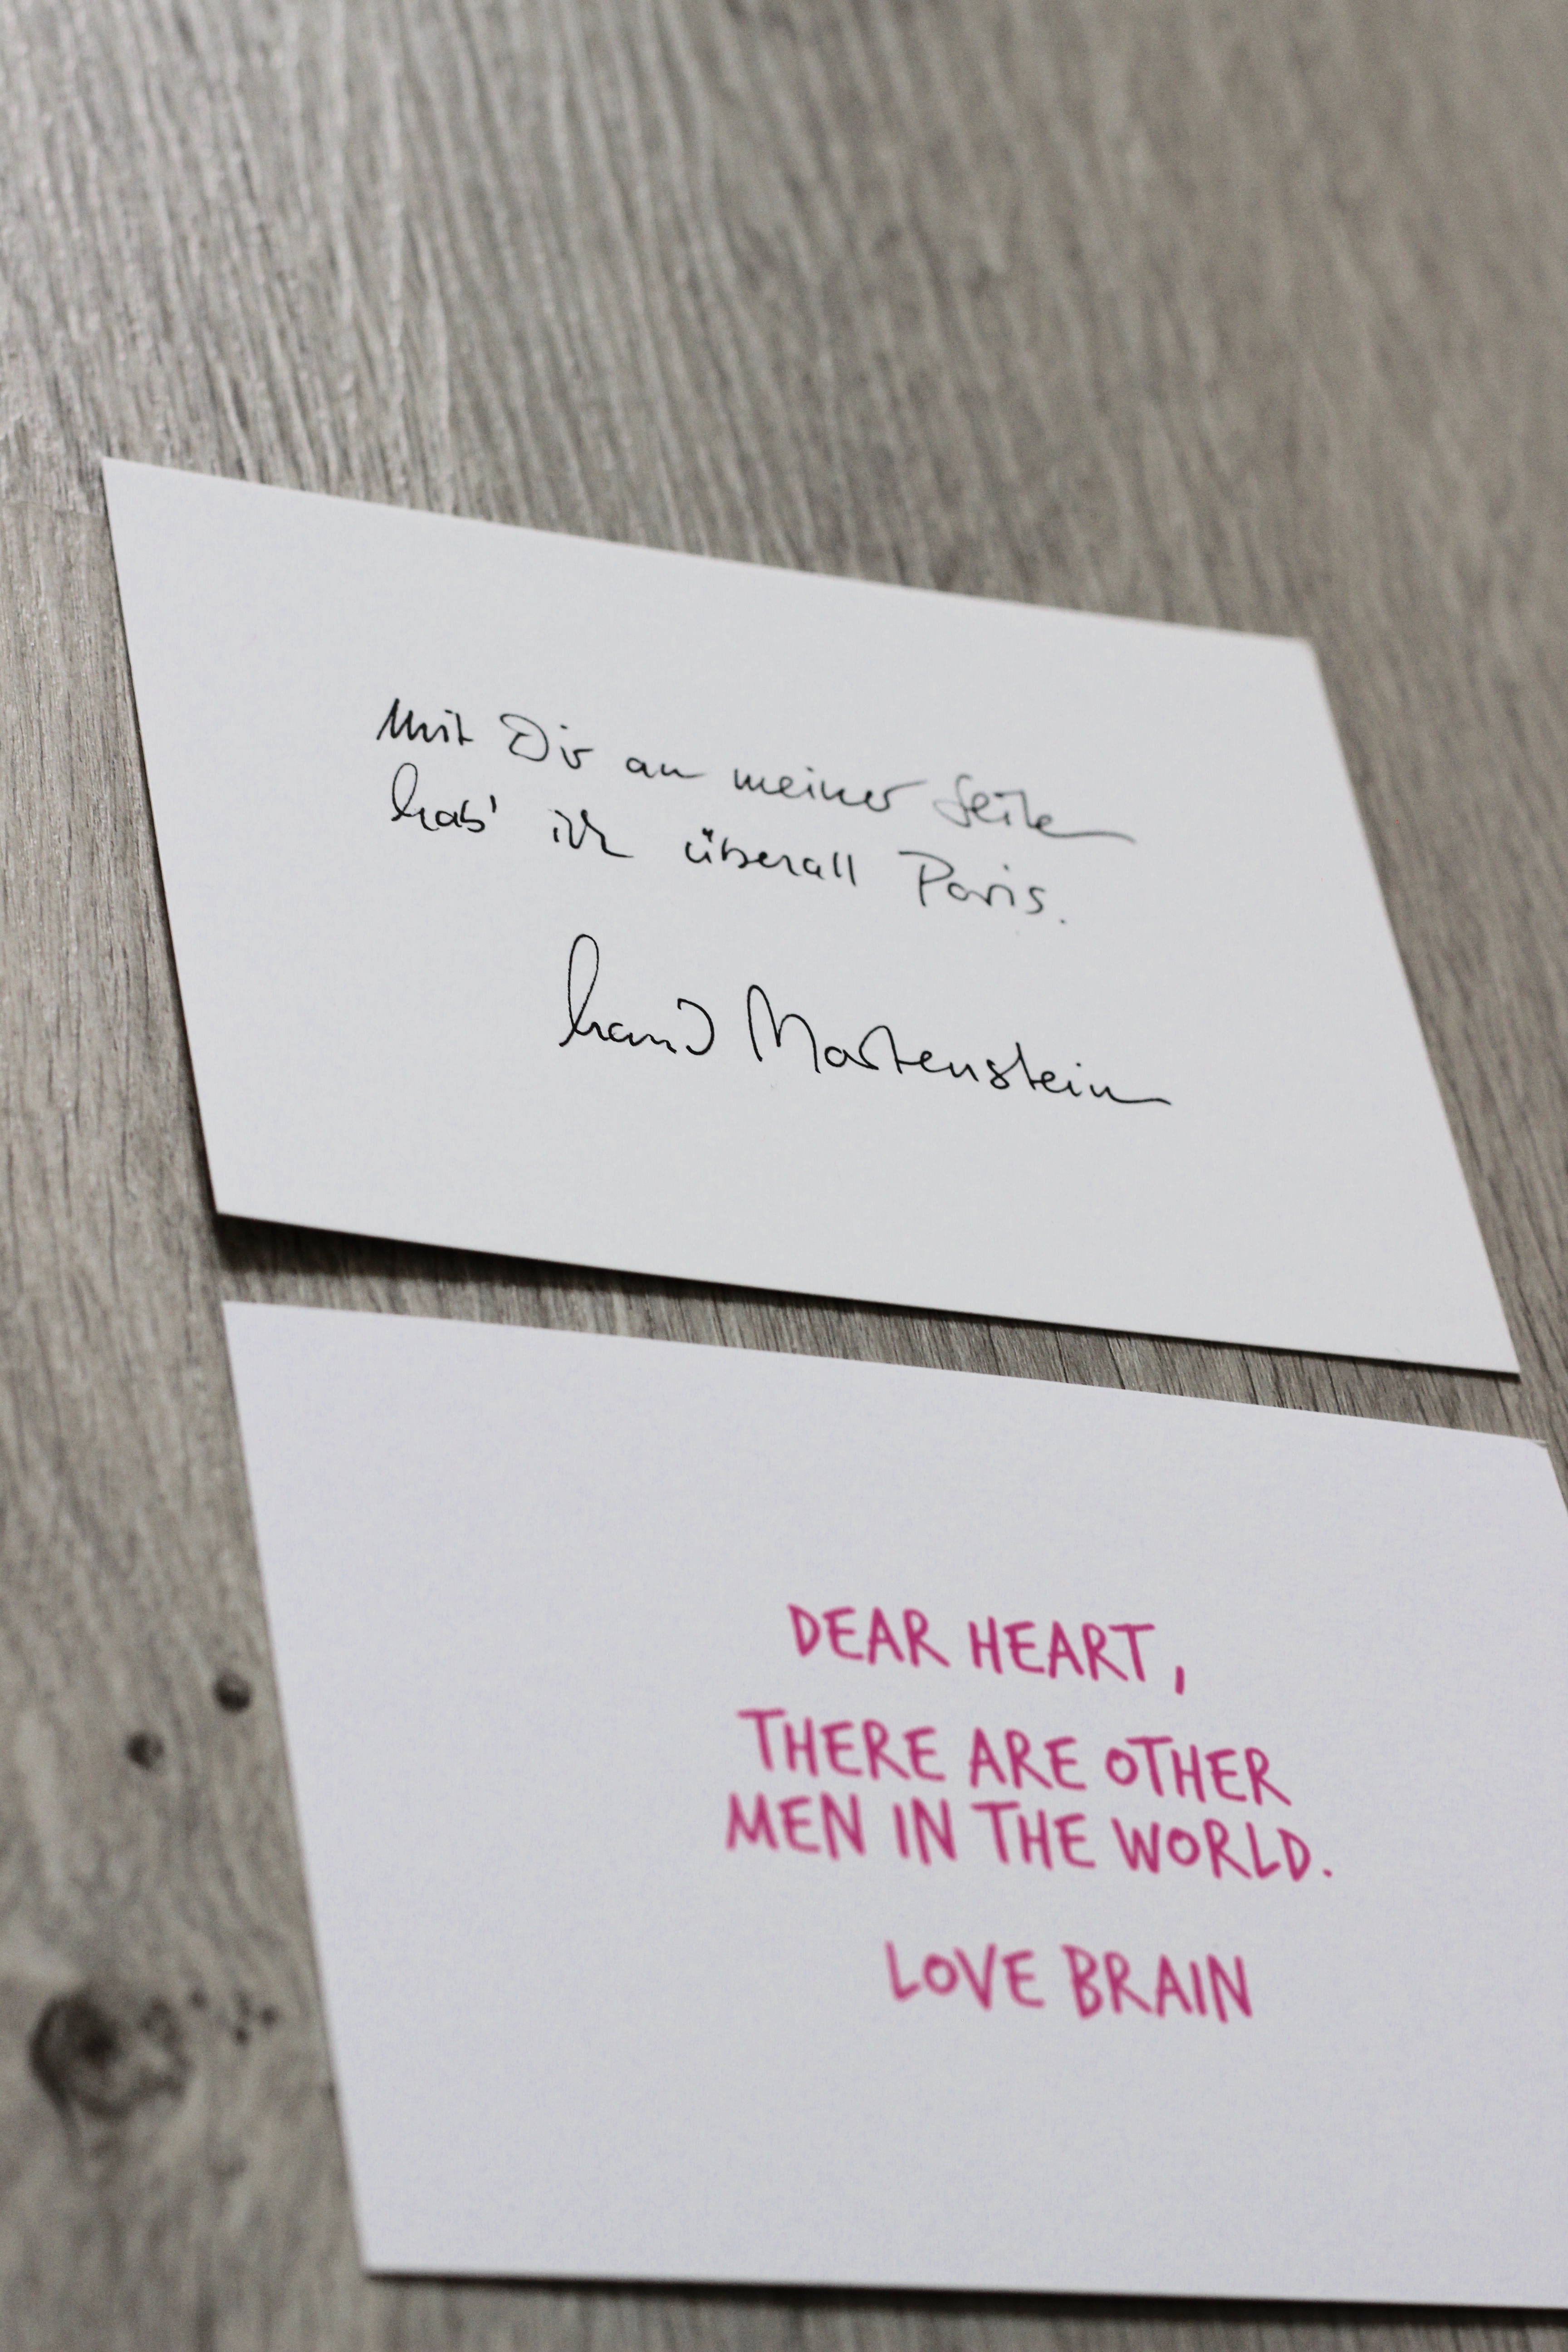 Mit Dir an meiner Seite
hab' ich überall Paris.
Martenstein
DEAR HEART,
THERE ARE OTHER
MEN IN THE WORLD.
LOVE BRAIN